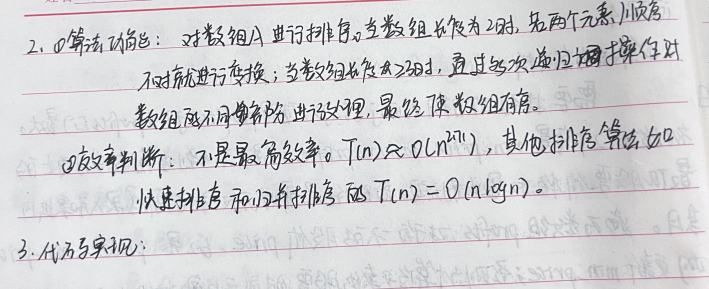 2. ①算法功能: 对数组A进行排序。当数组长度为2时, 若两个元素顺序
不对就进行变换; 当数组长度大于2时, 通过多次递归调用操作对
数组的不同部分进行处理, 最终使数组有序。
②效率判断: 不是最高效率。T(n)≈O(n^2.71), 其他排序算法如
快速排序和归并排序的T(n)=O(nlogn)。
3. 代码实现: